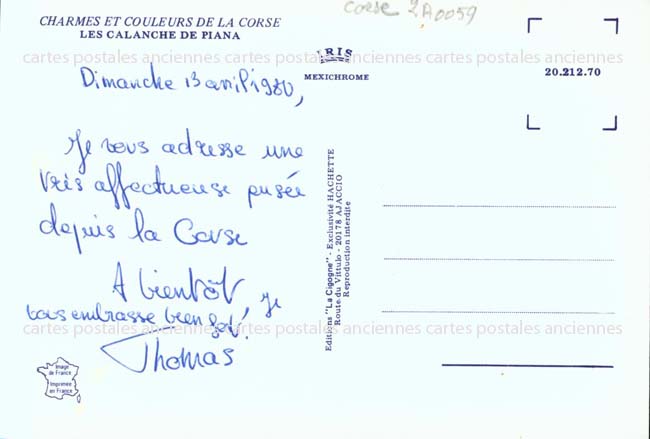 Corse 2A0059
CHARMES ET COULEURS DE LA CORSE
LES CALANCHE DE PIANA
IRIS
MEXICHROME
20.212.70
cartes postales anciennes cartes postales anciennes cartes postales anciennes
Dimanche 13 avril 1980,
Je vous adresse une
très affectueuse pensée
depuis la Corse
A bientôt, je
vous embrasse bien fort!
Thomas
Editions "La Cigogne" - Exclusivité HACHETTE
Route du Vittulo - 20178 AJACCIO
Reproduction interdite
cartes postales anciennes cartes postales anciennes cartes postales anciennes
cartes postales anciennes cartes postales anciennes cartes postales anciennes
Image
de France
Imprimée
en France